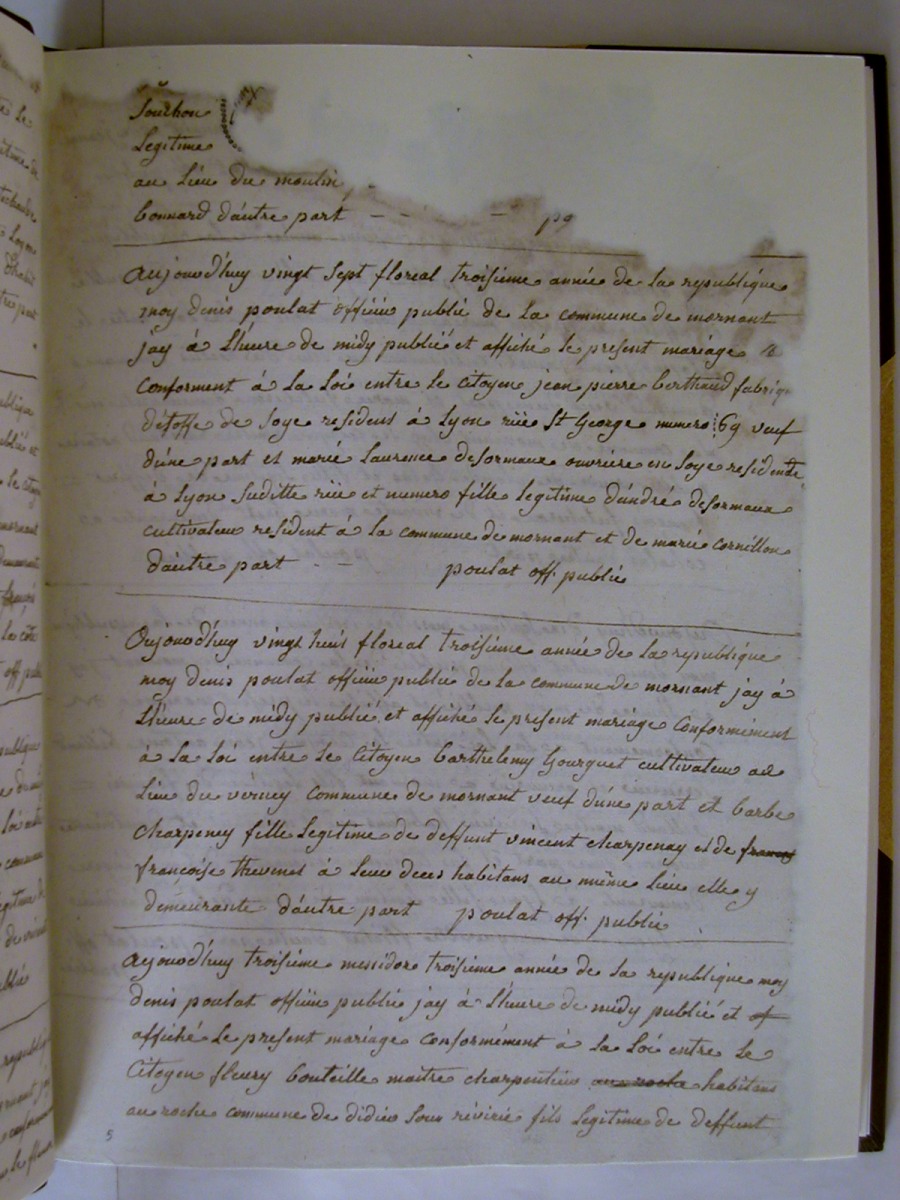 Souchon
Legitime
au Lieu du moulin
bonnard d'autre part
Aujourd'huy vingt sept floreal troisieme année de la republique
moy denis poulat officié publié de la commune de mornant
jay á Lheure de midy publié et affiché le present mariage
Conforment á la Loi entre le citoyen jean pierre berthaud fabriq
détoffe de soye resident á Lyon rüe St George numero 69 veuf
dúne part et marie Laurence desormaux ouvriere en soye residente
á Lyon suditte rüe et numero fille Legitime dándré desormaux
cultivateur resident á la commune de mornant et de marie cornillon
dáutre part poulat off. publié
Aujourd'huy vingt huit floreal troisieme année de la republique
moy denis poulat officié publié de la commune de mornant jay á
Lheure de midy publié et affiché le present mariage Conformément
á la Loi entre le Citoyen barthelemy Gourguet cultivateur au
Lieu du vérney commune de mornant veuf dúne part et barbe
charpeney fille Legitime de deffunt vincent charpenay et de
francoise thevenet á leur deces habitans au même Lieu elle y
deméurante dáutre part poulat off. publié
Aujourd'huy troisieme messidor troisieme année de la republique moy
denis poulat officié publié jay á Lheure de midy publié et
affiché le present mariage Conformément á la Loi entre le
Citoyen fleury bouteille maitre charpentier au roche habitans
au roche commune de didier sous rivirie fils Legitime de deffunt
5